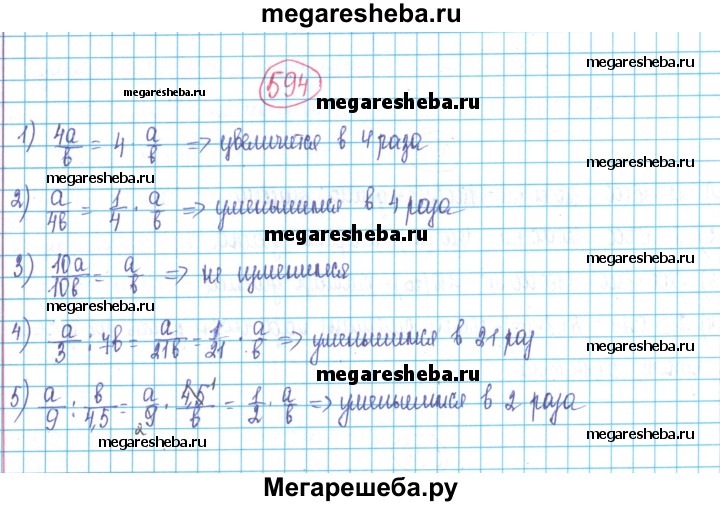 megaresheba.ru
megaresheba.ru
megaresheba.ru
594
megaresheba.ru
1) 4a/в = 4 · a/в => увеличится в 4 раза
megaresheba.ru
megaresheba.ru
2) a/4в = 1/4 · a/в => уменьшится в 4 раза
megaresheba.ru
3) 10a/10в = a/в => не изменится
megaresheba.ru
megaresheba.ru
4) a/3 : 7в = a/21в = 1/21 · a/в => уменьшится в 21 раз
megaresheba.ru
megaresheba.ru
5) a/9 : в/4,5 = a/9 2 · 4,5 1/в = 1/2 · a/в => уменьшится в 2 раза
megaresheba.ru
megaresheba.ru
Мегарешеба.ру